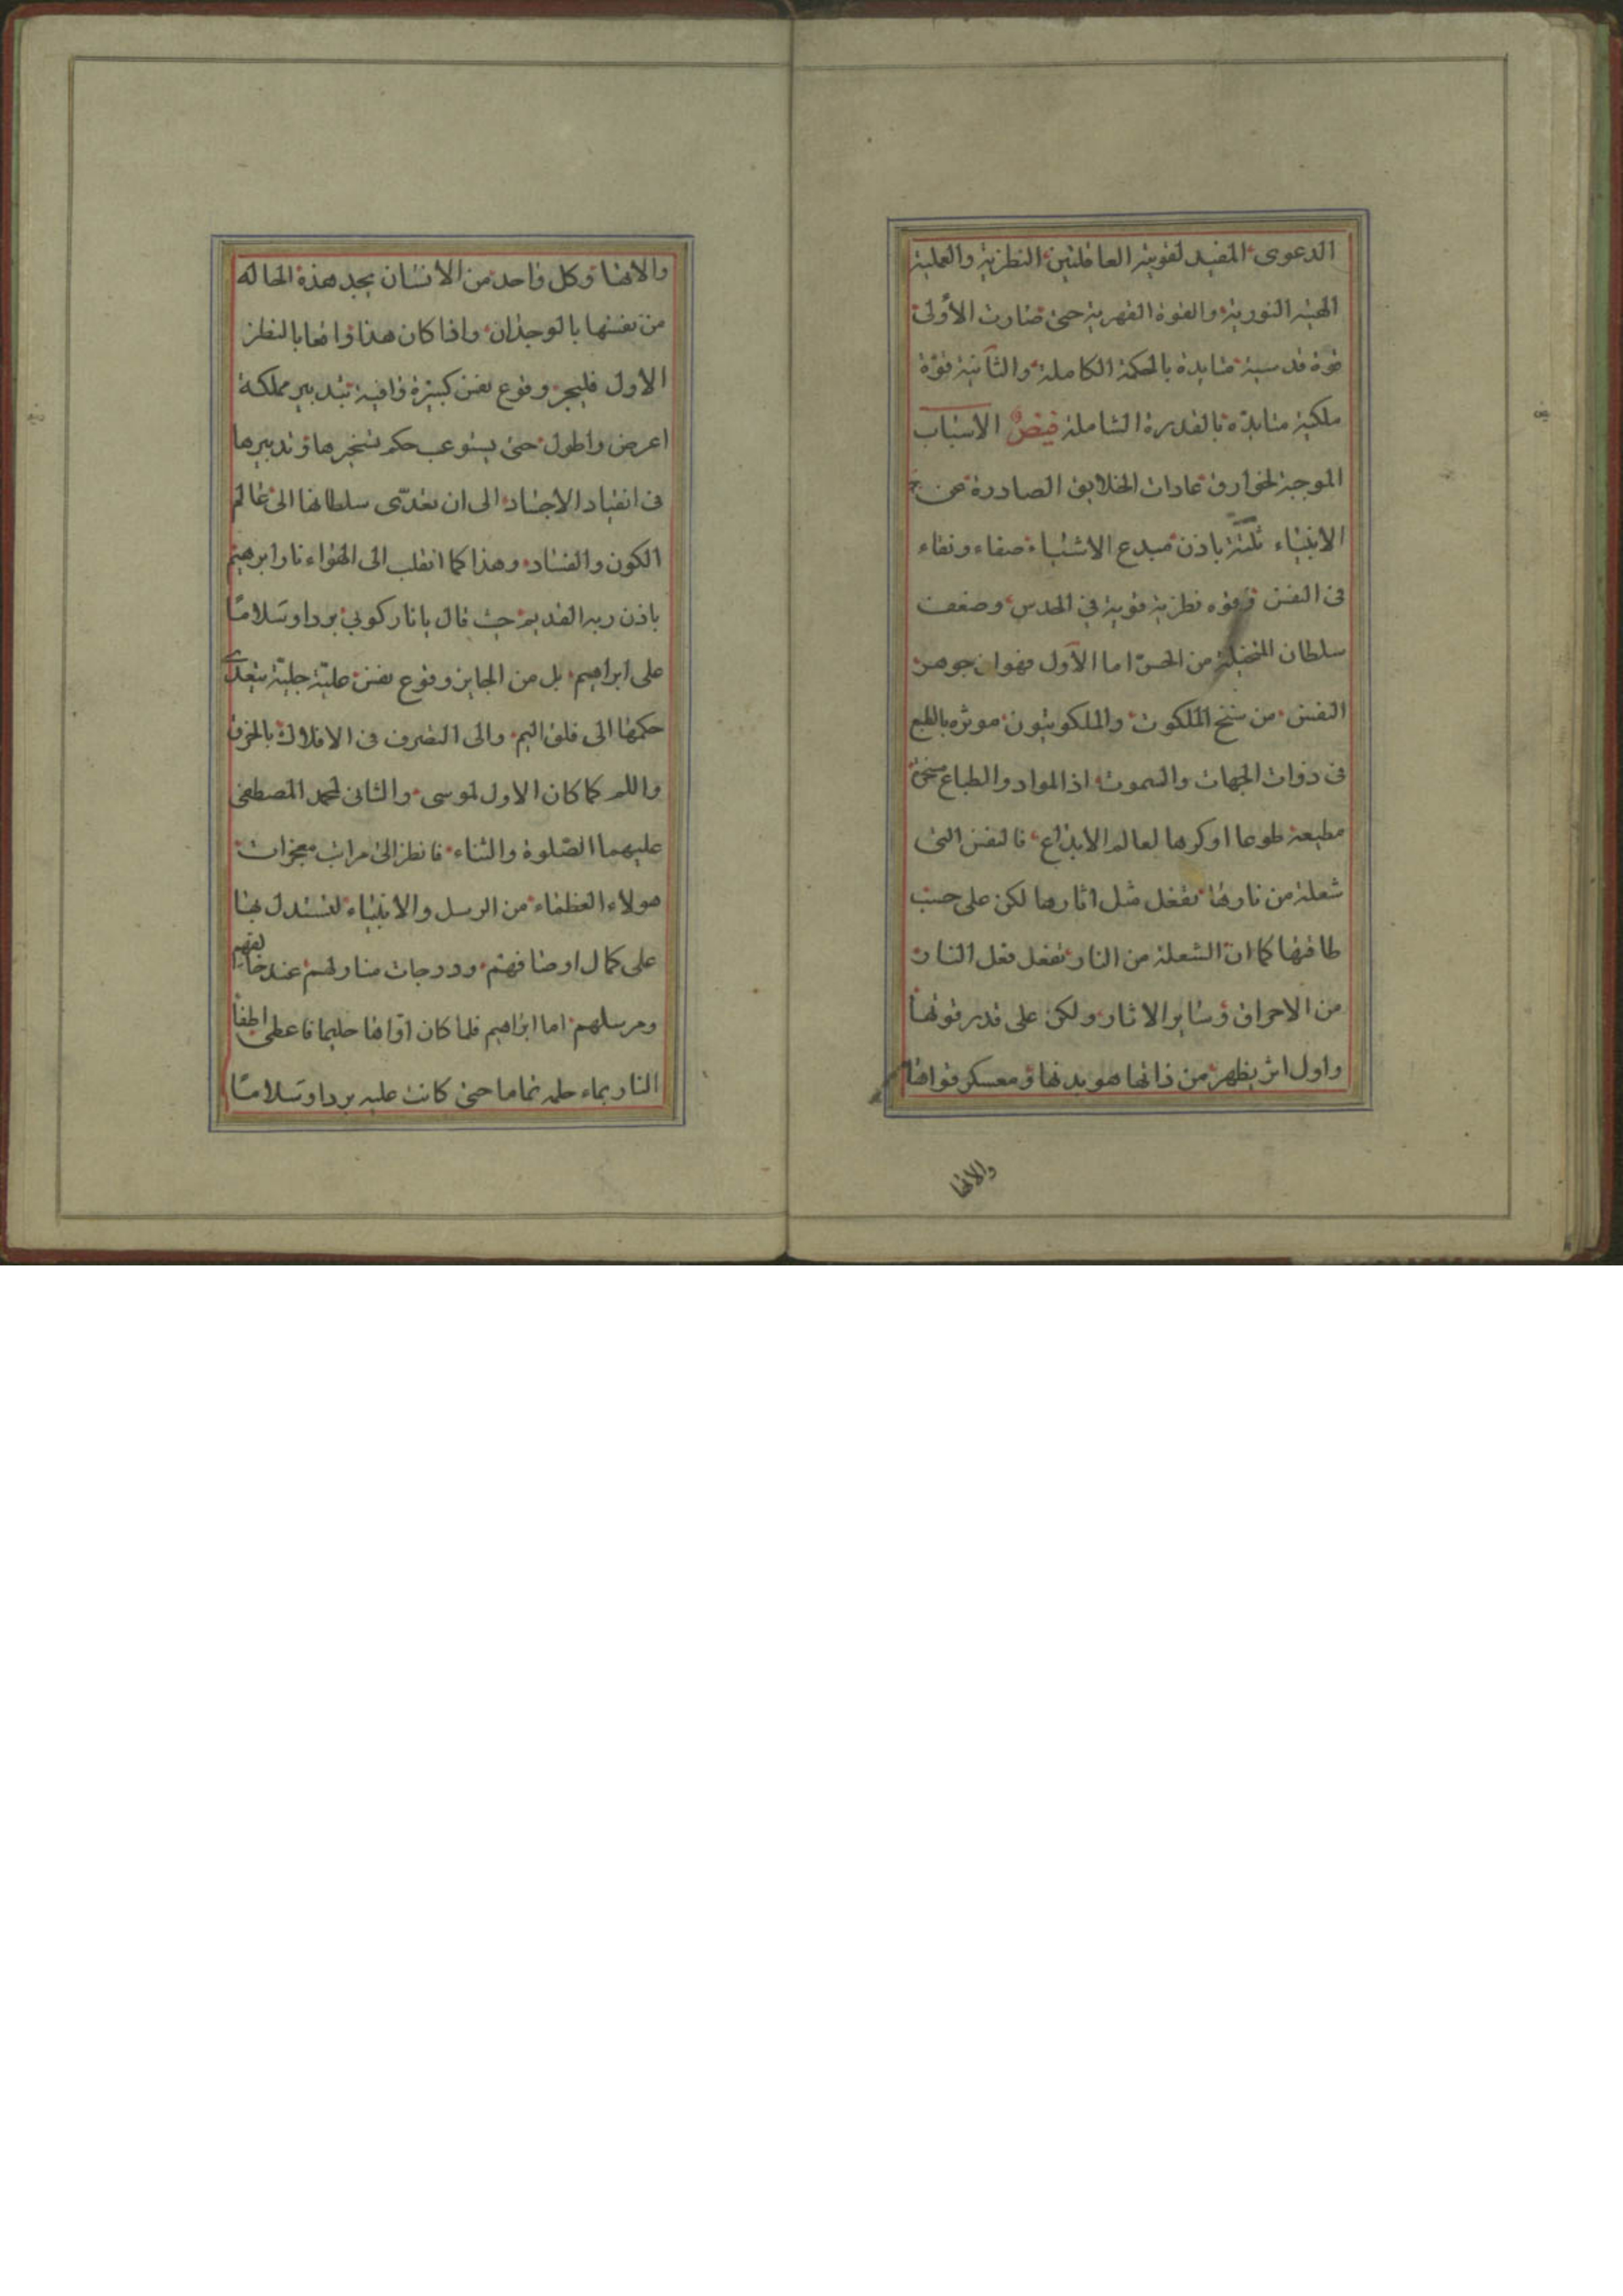 الدعوى المفيد لقويته العاقلتين النظرية والعملية
المحبة النورية والقوة القهرية حتى صارت الأولى
قوة قدسية متايدة بالحكمة الكاملة والثانية قوة
ملكية متايدة بالقدرة الشاملة فيض الاسباب
الموجبة لخوارق عادات الخلايق الصادرة عن
الانبياء ثلثة باذن مبدع الاشياء صفاء ونقاء
فى النفس وقوه نظرية قوية في الحدس وضعف
سلطان المتخيلة من الحس اما الأول فهو ان جوهر
النفس من سنخ الملكوت والملكوتيون موثره بالطبع
فى ذوات الجهات والسموت اذ المواد والطباع
مطيعة طوعا او كرها لعالم الابداع فالنفس التى
شعلة من نارها تفعل مثل اثارها لكن على حسب
طاقتها كما ان الشعلة من النار تفعل فعل النار
من الاحراق وساير الاثار ولكن على قدر قوتها
واول اثر يظهر من ذاتها هو بدنها ومعسكر قواها
والاتها
والاتها وكل واحد من الانسان يجد هذة الحاله
من نفسها بالوجدان واذا كان هذا واقعا بالنظر
الاول فليجز وقوع نفس كبيرة وافية بتدبير مملكة
اعرض واطول حتى يستوعب حكم تسخيرها وتدبيرها
فى انقياد الاجساد الى ان تعدّى سلطانها الى عالم
الكون والفساد وهذا كما انقلب الى الهواء نار ابرهيم
باذن ربه القديم حيث قال يا نار كوني بردا وسلاما
على ابراهيم بل من الجايز وقوع نفس عليّة جليّة يتعدى
حكمها الى فلق اليم والى التصرف فى الافلاك بالخرق
واللم كما كان الاول لموسى والثانى لمحمد المصطفى
عليهما الصّلوة والثناء فانظر الى مراتب معجزات
هولاء العظماء من الرسل والانبياء لتستدل بها
على كمال اوصافهم ودرجات منازلهم عند خالقهم
ومرسلهم اما ابراهيم فلما كان اوّاها حليما فاعطى اطفأ
النار بماء حلمه تماما حتى كانت عليه بردا وسلامًا